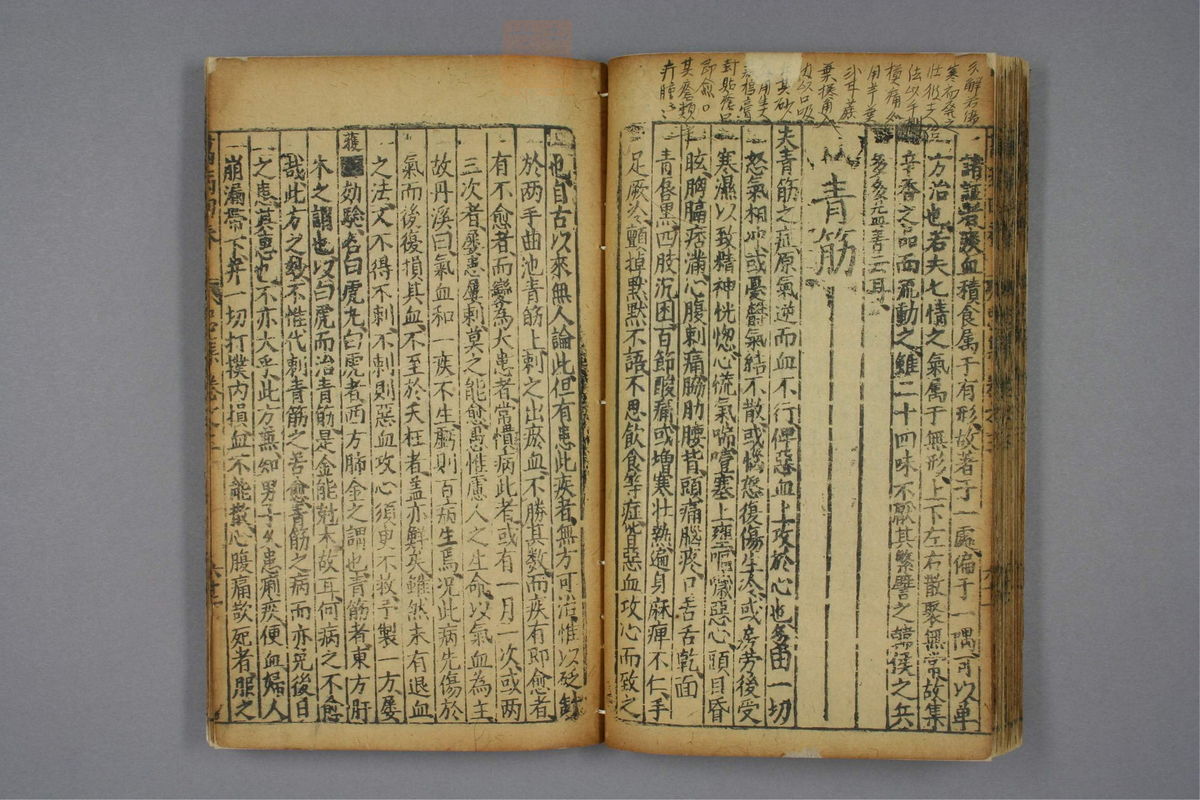 諸證若發血積食属于有形故著于一處偏于一隅可以单
方治也若夫七情之氣属于無形上下左右散聚無常故集
辛香之品而流動之雖二十四味不厭其繁譬之韓侯之兵
多多益善云耳
青筋
夫青筋之症原氣逆而血不行俾惡血上攻於心也多由一切
怒氣相冲或憂鬱氣結不散或惱怒復傷生冷或房劳後受
寒濕以致精神恍惚心慌氣喘噎塞上壅嘔噦惡心頭目昏
眩胸膈痞滿心腹刺痛脇肋腰背頭痛腦疼口舌舌乾面
青唇黑四肢沉困百節酸痛或增寒壮熱遍身麻痺不仁手
足厥冷顫掉默默不語不思飲食等症皆惡血攻心而致之
也自古以來無人論此但有患此疾者無方可治惟以砭針
於两手曲池青筋上刺之出瘀血不勝其数而疾有即愈者
有不愈者而變為大患者常慣病此者或有一月一次或两
三次者屡患屡刺莫之能愈愚惟慮人之生命以氣血為主
故丹溪曰氣血和一疾不生虧則百病生焉况此病先傷於
氣而後復損其血不至於夭枉者盖亦鮮矣雖然未有退血
之法又不得不刺不刺則惡血攻心須臾不救予製一方屡
獲効驗名曰虎九曰虎者西方肺金之謂也青筋者東方肝
木之謂也以白虎而治青筋是金能尅木故耳何病之不愈
哉此方之效不惟代刺青筋之苦愈青筋之病而亦免後日
之患其惠也不亦大乎此方兼知男子久患痢疾便血婦人
崩漏帶下并一切打撲内損血不能散心腹痛欲死者服之